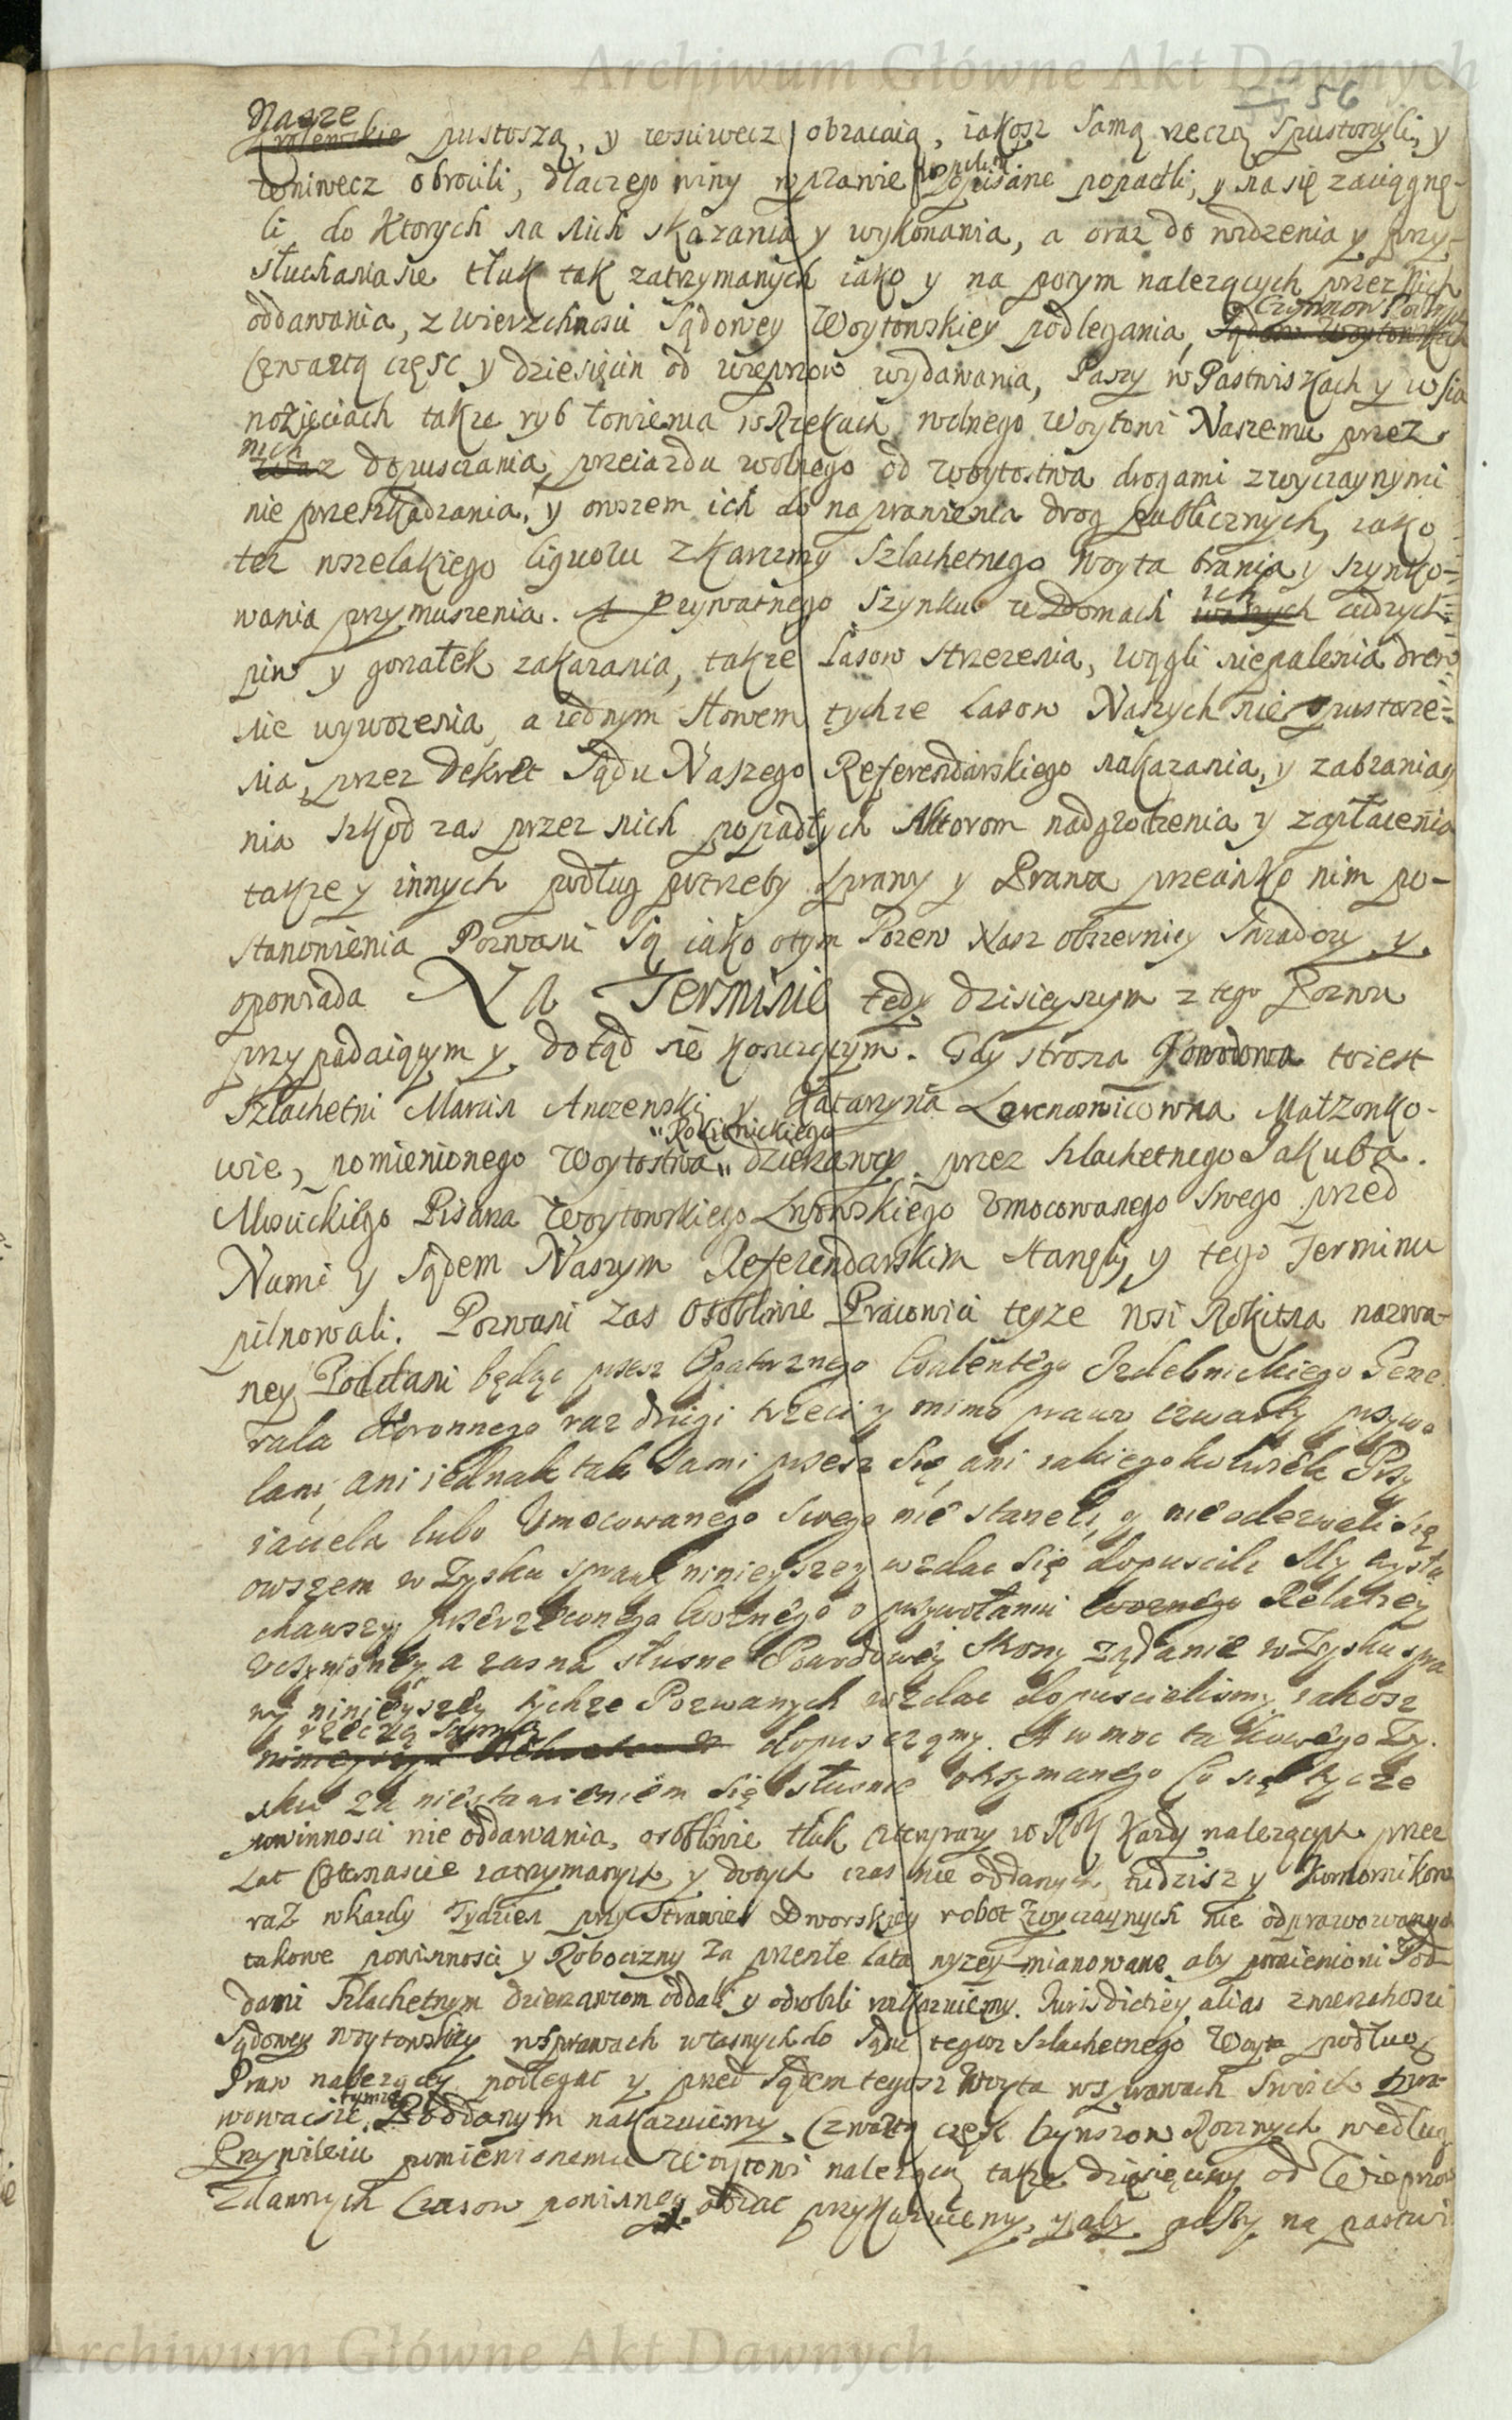 Archiwum Główne Akt Dawnych
56
Nasze
Krolewskie pustoszą, y wniwecz obracaią, iakosz samą rzeczą spustoszyli, y
wniwecz obrocili, dlaczego winy wprawie pospolitym opisane popadli, y na się zaciągnę-
li do ktorych na nich skazania y wykonania, a oraz do widzenia y przy-
słuchania sie tłuk tak zatrzymanych iako y na potym należących przez nich
oddawania, zwierzchnosci Sądowey Woytowskiey podlegania, Czynszow
Czwartą część y dziesięcin od wieprzow wydawania, Paszy w Pastwiskach y w sia
nożęciach także ryb łowienia w Rzekach wolnego Woytowi Naszemu przez
nich dopuszczania, przeiazdu wolnego od Woytostwa drogami zwyczaynymi
nie przeszkadzania, y owszem ich do naprawienia drog publicznych, iako
też wszelakiego liquoru z karczmy Szlachetnego Woyta brania y szynko-
wania przymuszenia. A Prywatnego szynku w Domach ich waszych cudzych
piw y gorzałek zakazania, także Lasow strzezenia, węgli niepalenia drew
nie wywożenia, a iednym słowem tychże Lasow Naszych nie spustosze-
nia, przez dekret Sądu Naszego Referendarskiego nakazania, y zabrania
nia szkod zas przez nich popadłych Aktorom nadgrodzenia y zapłacenia
także y innych podług potrzeby sprawy y Prawa przeciwko nim po-
stanowienia Pozwani są iako o tym Pozew Nasz obszerniey w sobie y
opowiada Na Terminie tedy dzisieyszym z tego Pozwu
przypadaiącym y dotąd się toczącym. Gdy strona Powodowa to iest
Szlachetni Marcin y Katarzyna Małżonko-
wie, pomienionego Woytostwa "Rokitnickiego" dzierzawcy przez szlachetnego Jakuba
Pisarza Woytowskiego Umocowanego swego przed
Nami y Sądem Naszym Referendarskim stanęli, y tego Terminu
pilnowali. Pozwani zas osobliwie Pracowici teyże wsi Rokitna nazwa-
ney Poddani będąc przez Opatrznego Walentego Izdebnickiego Gene
rała Koronnego raz drugi trzeci y mimo prawo czwarty przywo
łani, ani iednak tak sami przesz się ani iakiegokolwiek Przy
iaciela lubo Umocowanego swego nie staneli, y nie odezwali się
owszem w Zysku sprawy ninieyszey wzdac się dopuscili My wysłu
chawszy pszerzeczonego Woznego o przywołaniu Woznego Relatiey
uczynioney a zas na słuszne Powodowey strony żądanie w Zysku spra
wy ninieyszey tychże Pozwanych wzdac dopuscielismy, iakosz
rzeczą samą
dopusczamy. A w moc takowego Zy-
sku za niestawieniem się słusznie otrzymanego Co się tycze
powinnosci nie oddawania, osobliwie tłuk cztyrzy w Rok każdy należących przez
Lat czternascie zatrzymanych y dotych czas nie oddanych, tudziesz y Komornikow
raz w każdy Tydzien przy strawie Dworskiey robot zwyczaynych nie odprawowanych
takowe powinnosci y Robocizny za przeszłe Lata wyżey mianowane aby pomienioni Pod-
dani Szlachetnym dzierzawcom oddali y odrobili nakazuiemy. Jurisdictiey alias zwierzchosci
Sądowey woytowskiey w sprawach własnych do Sądu tegosz Szlachetnego Woyta podług
Praw należącey podlegac y przed Sądem tegosz Woyta w sprawach swoich spra-
wowac sie, tymże Poddanym nakazuiemy. Czwartą część czynszow Rocznych według
Przywileiu pomienionemu Woytowi należącą także dziesięciny od Wieprzow
z dawnych Czasow powinney oddac przykazuiemy, y aby paszy na pastwi
Archiwum Główne Akt Dawnych